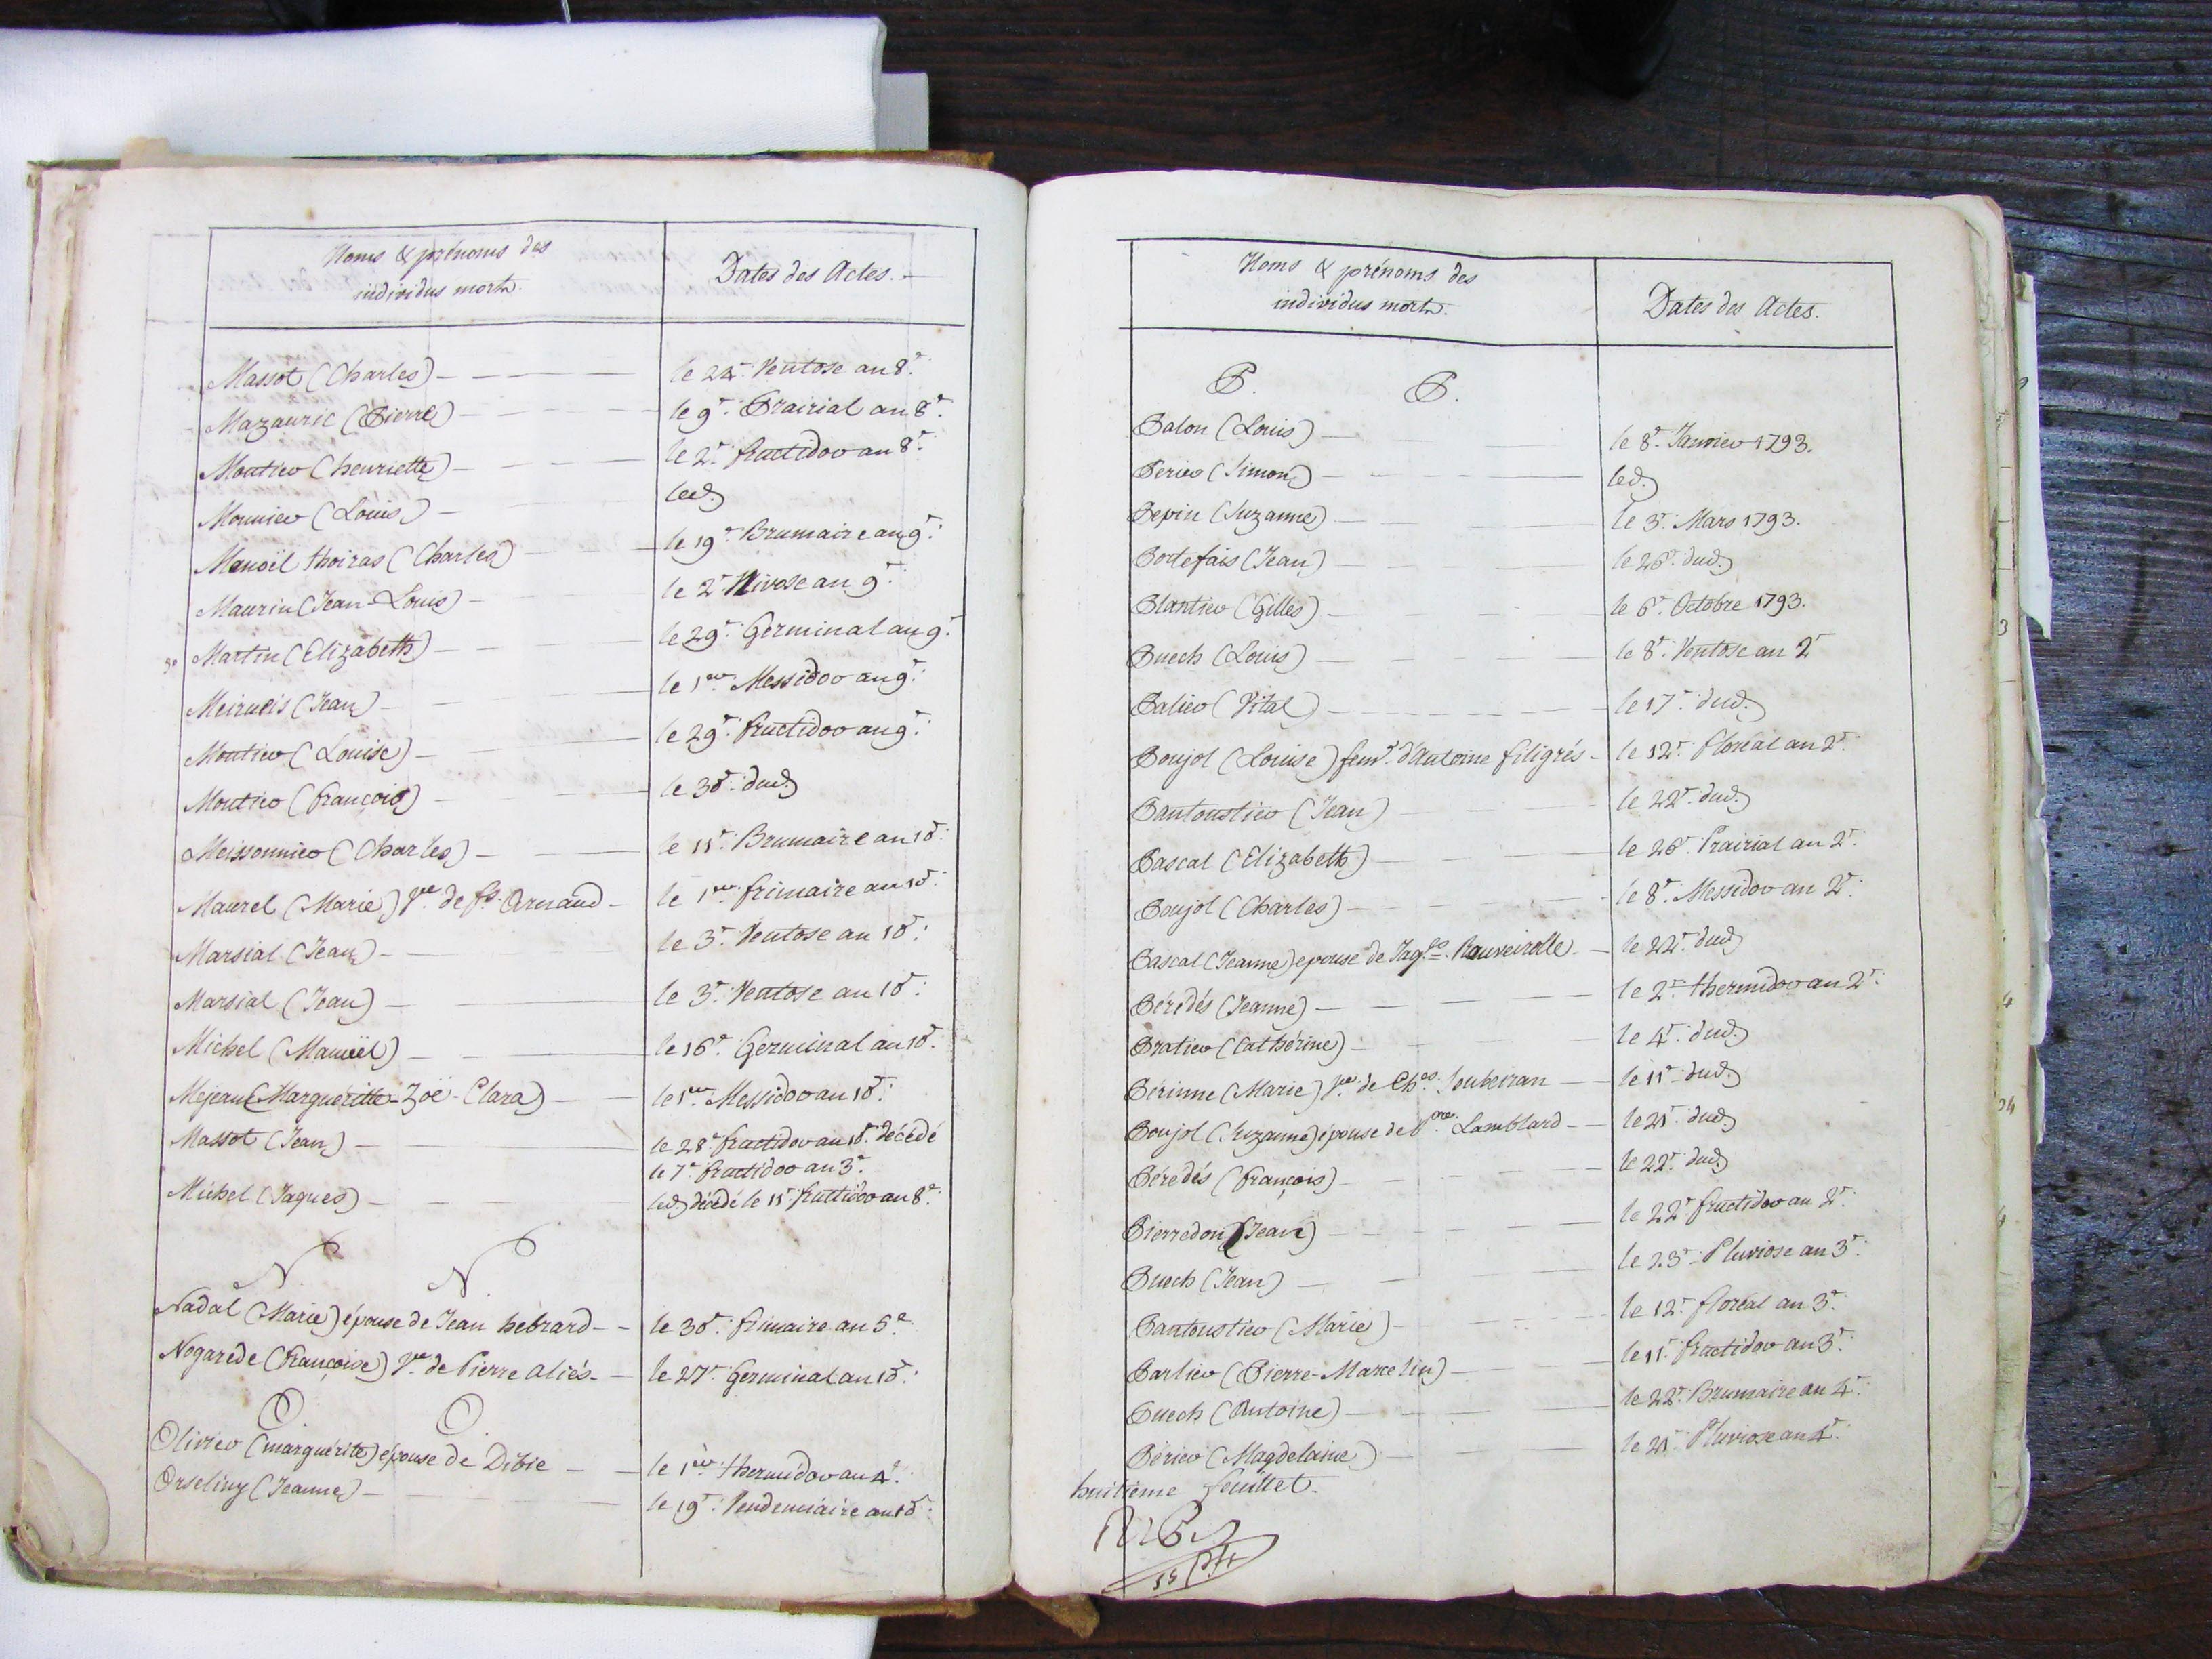 Noms & prénoms des
individus morts.
Dates des Actes.
Massot (Charles) le 24e. Ventose an 8e.
Mazauric (Pierre) le 9e. Prairial an 8e.
Moutier (henriette) le 2e. fructidor an 8e.
Mounier (Louis) led.
Manoël thoiras (Charles) le 19e. Brumaire an 9e.
Maurin (Jean-Louis) le 2e. Nivose an 9e.
Martin (Elizabeth) le 29e. Germinal an 9e.
Meirueis (Jean) le 1er. Messidor an 9e.
Moutier (Louise) le 29e. fructidor an 9e.
Moutier (françois) le 30e. dud.
Meissonnier (Charles) le 11e. Brumaire an 10e.
Maurel (Marie) Ve. de fs. Arnaud le 1er. frimaire an 10e.
Marsial (Jean) le 3e. Ventose an 10e.
Marsial (Jean) le 3e. Ventose an 10e.
Michel (Manuel) le 16e. Germinal an 10e.
Mejean (Marguéritte-Zoë-Clara) le 1er. Messidor an 10e.
Massot (Jean) le 28e. fructidor an 10e. décédé
le 7e. fructidor an 3e.
Michel (Jaques) led. décédé le 11e. fructidor an 8e.
N. N.
Nadal (Marie) épouse de Jean hébrard le 30e. frimaire an 5e.
Nogarede (françoise) Ve. de Pierre Aliés le 27e. Germinal an 10e.
O. O.
Olivier (marguérite) épouse de Dibie le 1er. thermidor an 4e.
Orseliny (Jeanne) le 19e. Vendemiaire an 10e.
Noms & prénoms des
individus morts.
Dates des Actes.
P. P.
Palon (Louis) le 8e. Janvier 1793.
Périer (Simon) led.
Pepin (Suzanne) le 3e. Mars 1793.
Portefais (Jean) le 26e. dud.
Plantier (Gilles) le 6e. Octobre 1793.
Puech (Louis) le 8e. Ventose an 2e
Palier (Vital) le 17e. dud.
Poujol (Louise) feme. d'Antoine filigrés le 12e. floréal an 2e.
Pantoustier (Jean) le 22e. dud.
Pascal (Elizabeth) le 26e. Prairial an 2e.
Poujol (Charles) le 8e. Messidor an 2e.
Pascal (Jeanne) epouse de Jaqes. Rauveirolle le 22e. dud.
Pérédés (Jeanne) le 2e. thermidor an 2e.
Pratier (Cathérine) le 4e. dud.
Périnne (Marie) Ve. de Ches. Soubeiran le 11e. dud.
Poujol (Suzanne) épouse de Pre. Lamblard le 21e. dud.
Pérédés (françois) le 22e. dud.
Pierredon (Jean) le 22e fructidor an 2e.
Puech (Jean) le 23e. Pluviose an 3e.
Pantoustier (Marie) le 12e. floréal an 3e.
Parlier (Pierre-Marcelin) le 11e. fructidor an 3e.
Puech (Antoine) le 22e. Brumaire an 4e.
Périer (Magdelaine) le 21e. Pluviose an 4e.
huitième feuillet.